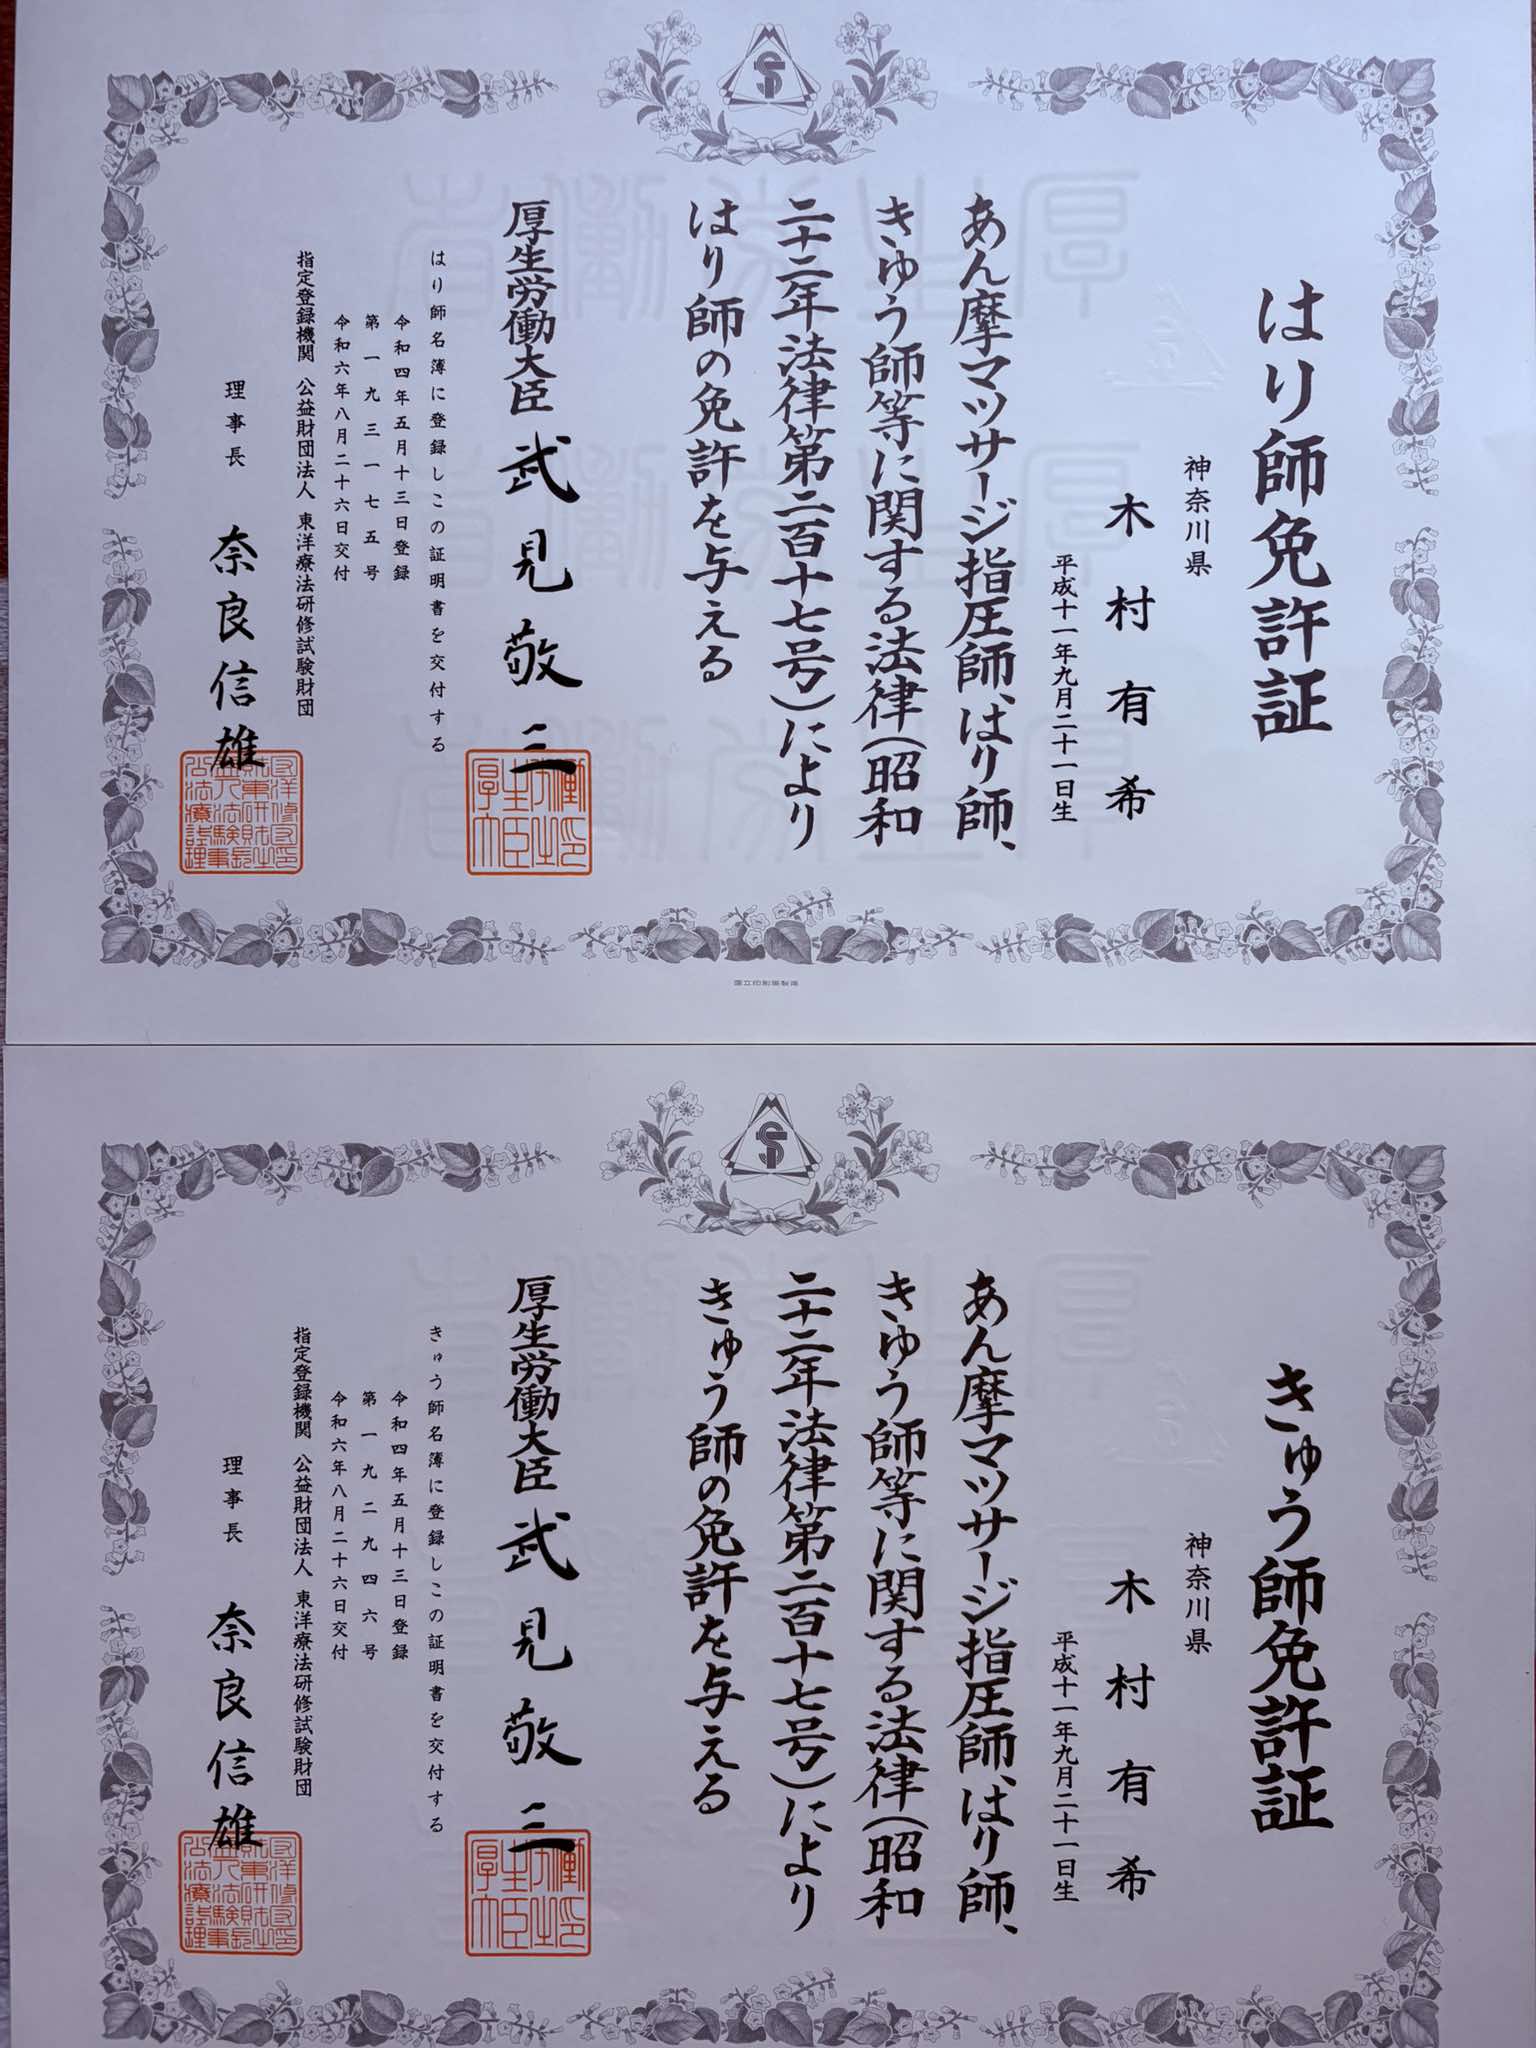 はり師免許証
神奈川県
木村有希
平成十一年九月二十一日生
あん摩マツサージ指圧師、はり師、
きゆう師等に関する法律(昭和
二十二年法律第二百十七号)により
はり師の免許を与える
厚生労働大臣 武見敬三
はり師名簿に登録しこの証明書を交付する
令和四年五月十三日登録
第一九三一七五号
令和六年八月二十六日交付
指定登録機関 公益財団法人 東洋療法研修試験財団
理事長 奈良信雄
国立印刷局製造
きゅう師免許証
神奈川県
木村有希
平成十一年九月二十一日生
あん摩マツサージ指圧師、はり師、
きゆう師等に関する法律(昭和
二十二年法律第二百十七号)により
きゅう師の免許を与える
厚生労働大臣 武見敬三
きゅう師名簿に登録しこの証明書を交付する
令和四年五月十三日登録
第一九二九四六号
令和六年八月二十六日交付
指定登録機関 公益財団法人 東洋療法研修試験財団
理事長 奈良信雄